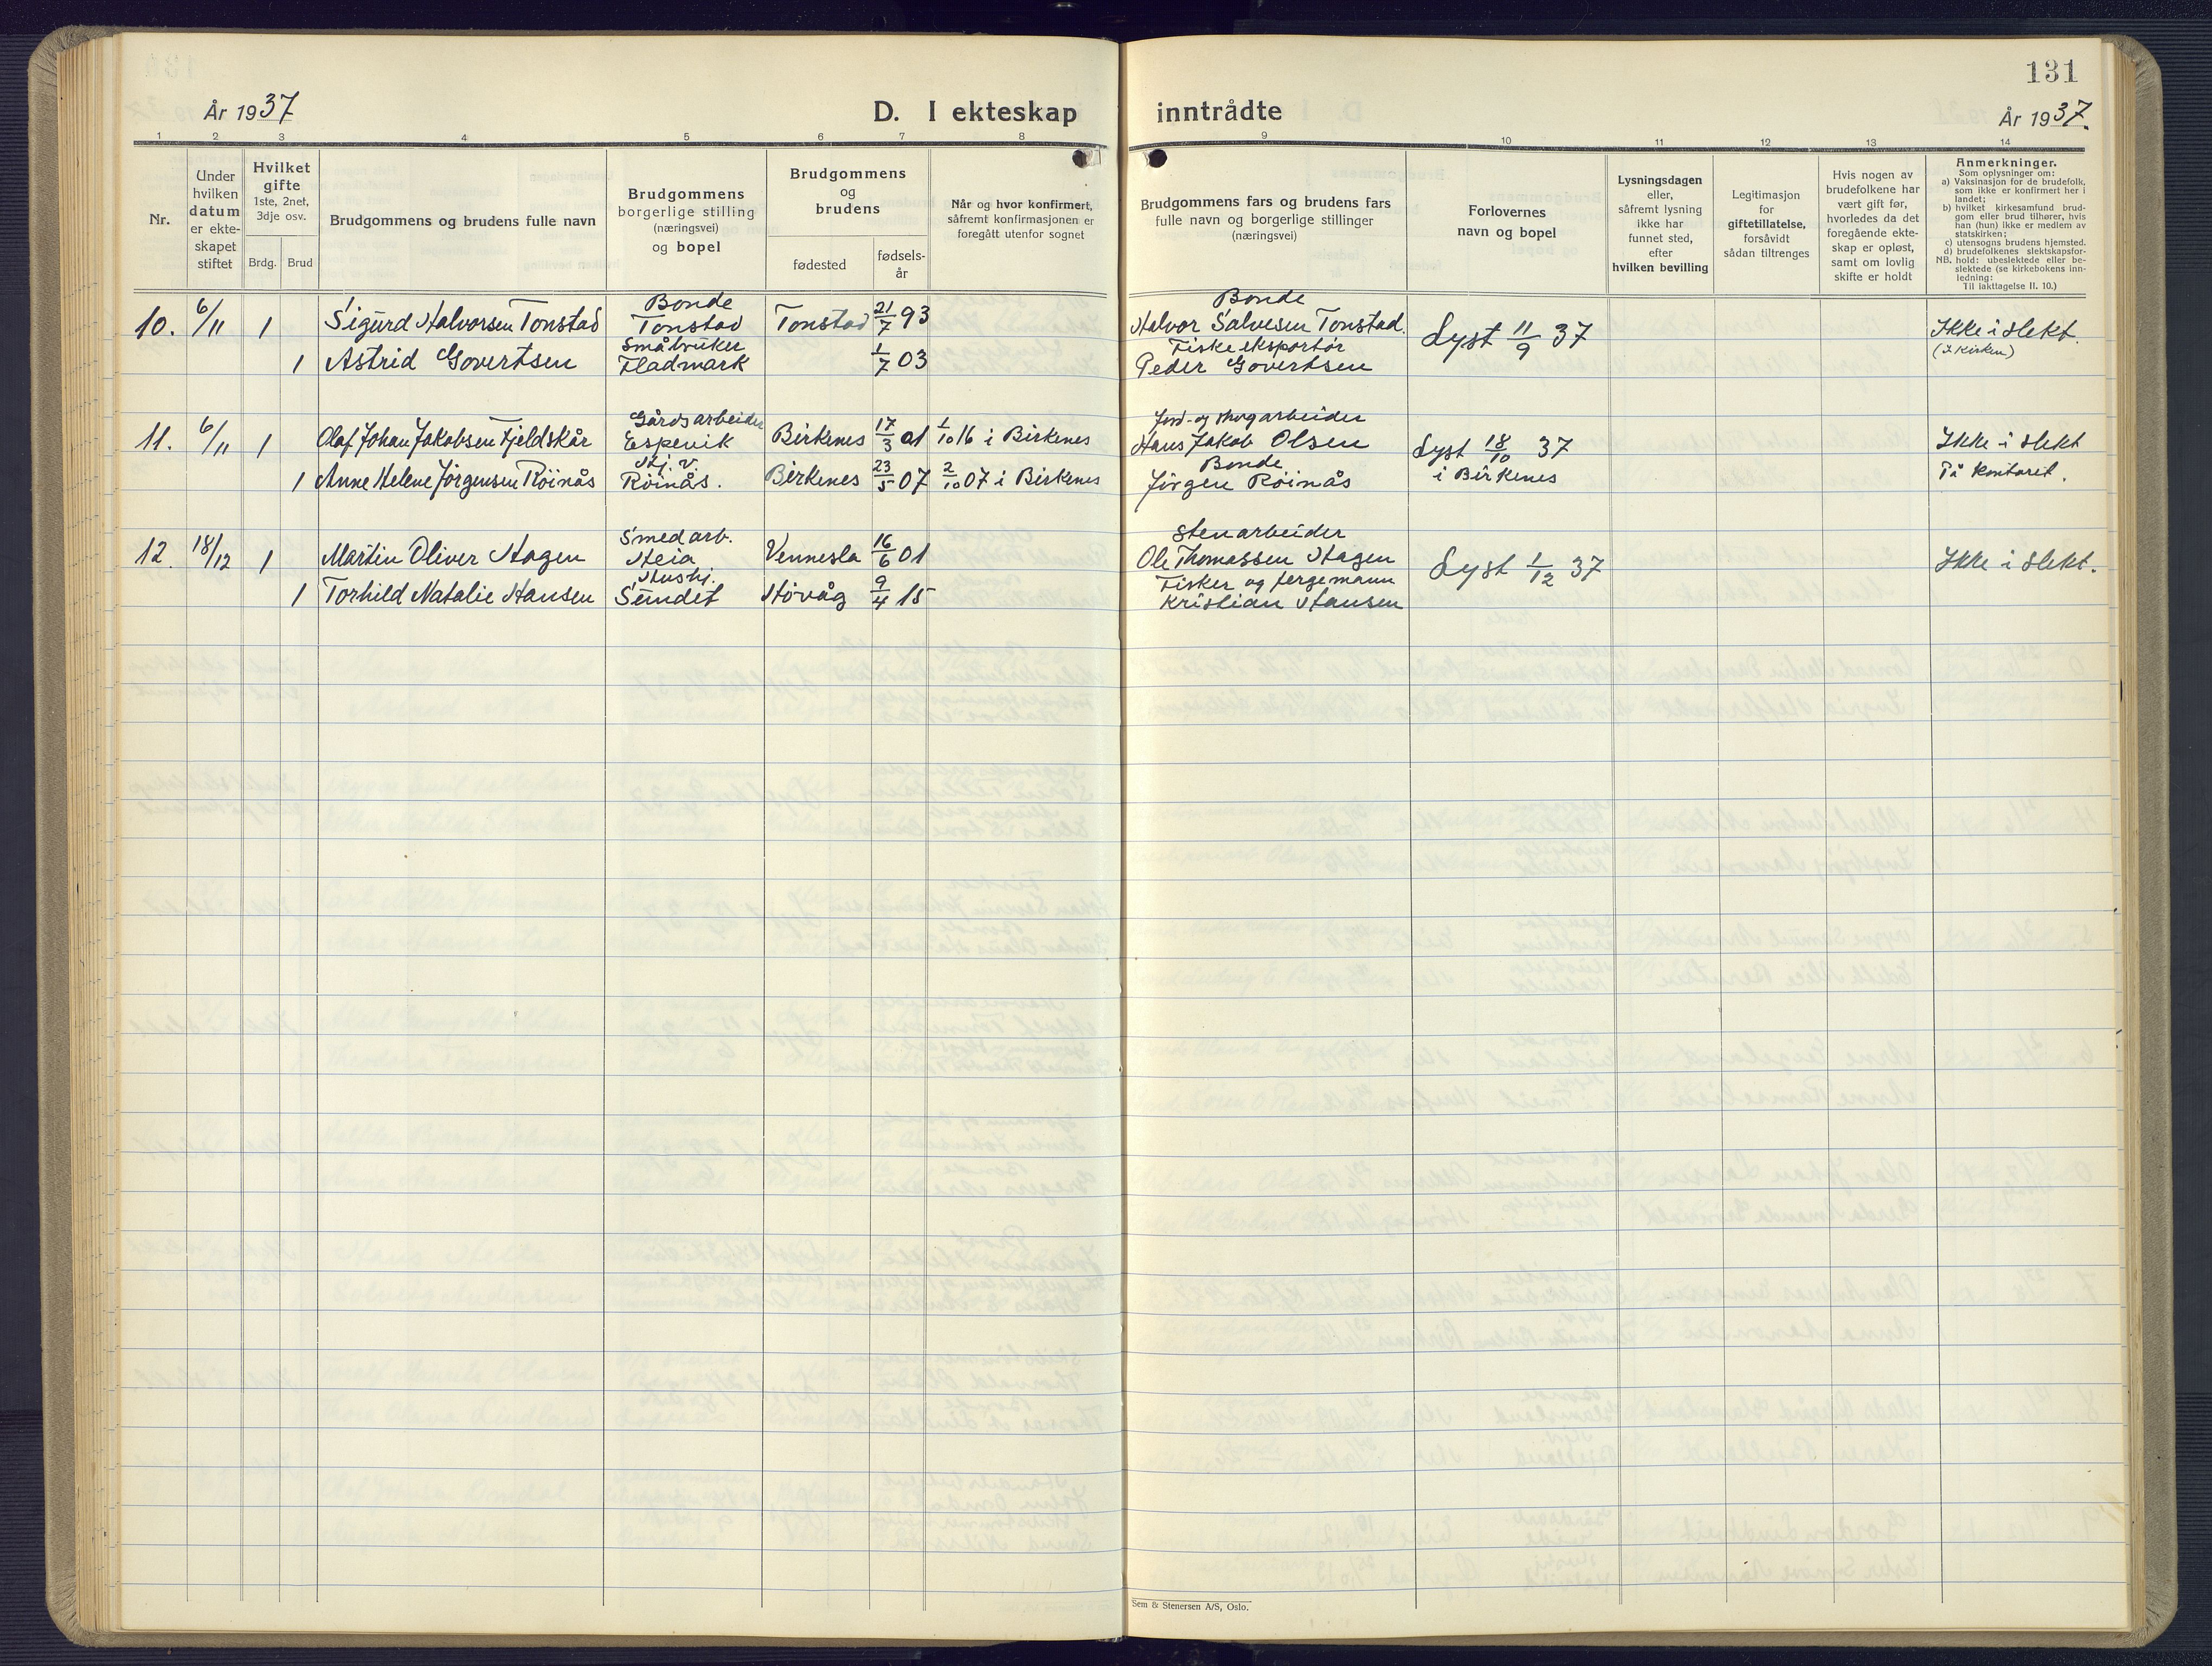 131
År 1937
D. I ekteskap inntrådte
År 1937.
1 2 3 4 5 6 7 8 9 10 11 12 13 14
Nr.
Under hvilken datum er ekteskapet stiftet
Hvilket gifte 1ste, 2net, 3dje osv.
Brdg. Brud
Brudgommens og brudens fulle navn
Brudgommens borgerlige stilling (næringsvei) og bopel
Brudgommens og brudens
fødested
fødselsår
Når og hvor konfirmert, såfremt konfirmasjonen er foregått utenfor sognet
Brudgommens fars og brudens fars fulle navn og borgerlige stillinger (næringsvei)
Forlovernes navn og bopel
Lysningsdagen eller, såfremt lysning ikke har funnet sted, efter hvilken bevilling
Legitimasjon for giftetillatelse, forsåvidt sådan tiltrenges
Hvis nogen av brudefolkene har vært gift før, hvorledes da det foregående ekteskap er opløst, samt om lovlig skifte er holdt
Anmerkninger.
Som oplysninger om:
a) Vaksinasjon for de brudefolk, som ikke er konfirmert her i landet;
b) hvilket kirkesamfund brudgom eller brud tilhører, hvis han (hun) ikke er medlem av statskirken;
c) utensogns brudens hjemsted.
d) brudefolkenes slektskapsforhold: ubeslektede eller beslektede (se kirkebokens innledning:
NB.
Til iakttagelse II. 10.)
Bonde Bonde
10. 6/11 1 Sigurd Halvorsen Tonstad Tonstad Tonstad 21/7 93 Halvor Salvesen Tonstad. Lyst 11/9 37 Ikke i slekt.
Småbruker Fiskeeksportør (I kirken)
1 Astrid Govertsen Fladmark 1/7 03 Peder Govertsen
Gårdsarbeider Jord- og skogarbeider
11. 6/11 1 Olaf Johan Jakobsen Fjeldskår Espevik Birkenes 17/3 01 1/10 16 i Birkenes Hans Jakob Olsen Lyst 18/10 37 Ikke i slekt
Stj. v. Bonde
1 Anne Helene Jörgensen Röinås Röinås. Birkenes 23/5 07 2/10 07 i Birkenes Jörgen Röinås i Birkenes På kontoret.
Smedarb. Stenarbeider
12. 18/12 1 Martin Oliver Hagen Heia Vennesla 16/6 01 Ole Thomassen Hagen Lyst 1/12 37 Ikke i slekt.
Hushj. Fisker og fergemann
1 Torhild Natalie Hansen Sundet Høvåg 9/4 15 Kristian Hansen
Sem & Stenersen A/S, Oslo.